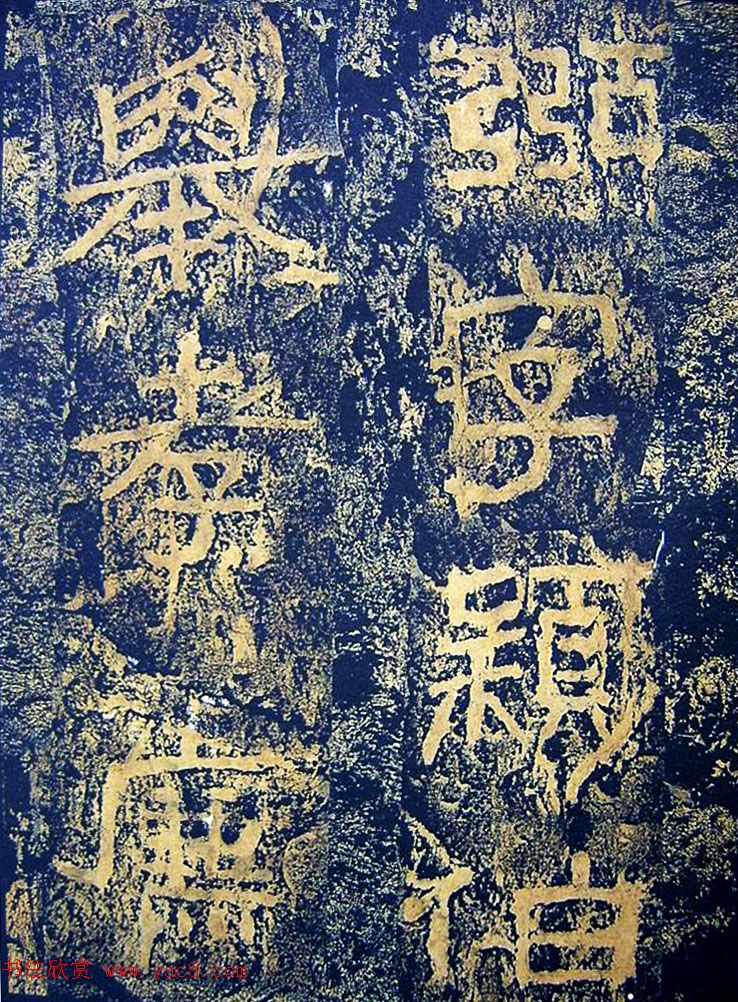 弼字穎伯
舉孝廉
书法欣赏 www.yac8.com